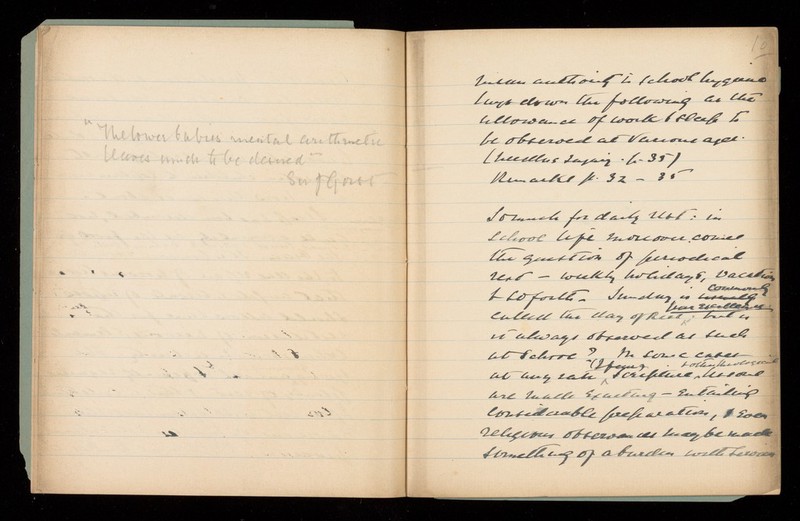 "The lower babies mental arithmetic
leaves much to be desired"
Sir J Gorst
10
authority in School hygiene
lays down the following as the
allowance of work & sleep to
be observed at various ages.
(Needless Inquiry. p. 35)
Remarks p. 32 - 35
So much for daily rest: in
School life moreover comes
the question of periodical
rest - weekly holidays, vacation
& so forth. Sunday is commonly
called the day of Rest par excellence, but is
it always observed as such
at School? In some cases
at any rate Scripture lessons
are made exacting - entailing
considerable preparation, & even
religious observances may be made
something of a burden with services